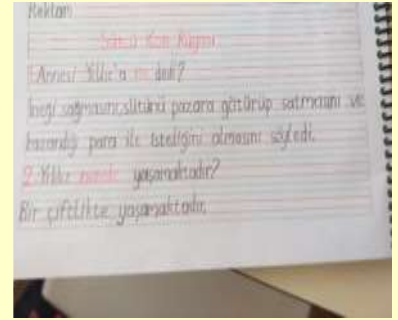 Reklam
Sütçü Kızın Rüyası
1. Annesi Yıldız'a ne dedi?
İneği sağmasını, sütünü pazara götürüp satmasını ve
kazandığı para ile istediğini almasını söyledi.
2. Yıldız nerede yaşamaktadır?
Bir çiftlikte yaşamaktadır.